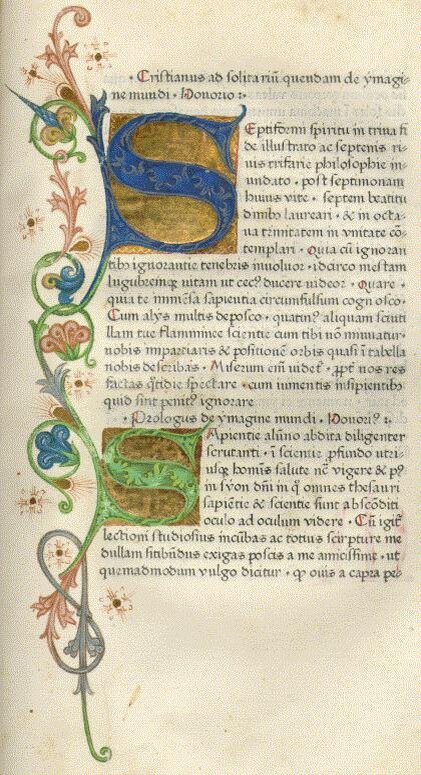 · Cristianus ad solitariū quendam de ymagi-
ne mundi · Honorio :·
SEptiformi spiritu in trina fi-
de illustrato ac septenis ri-
uis trifarie philosophie in-
undato · post septimonam
huius vite · septem beatitu
dinib; laureari · & in octa-
ua trinitatem in vnitate cō-
templari · Quia cū ignoran
tib; ignorantie tenebris inuoluor · idcirco mestam
lugubremq; uitam ut cec⁹ ducere uideor · Quare ·
quia te immēsa sapientia circunfulsum cognosco ·
Cum alys multis deposco · quatin⁹ aliquam scinti
llam tue flammince scientie cum tibi nō minuatur
nobis impartiaris & positionē orbis quasi ī tabella
nobis describas · Miserum eni uidet̄ · ꝓpt̄ nos res
factas q̄tidie spectare · cum iumentis insipientib;
quid sint penit⁹ ignorare
· Prologus de ymagine mundi · Honori⁹ :·
SApientie alūno abdita diligenter
scrutanti · ī scientie ꝓfundo utri-
usq; homīs salute nē vigere & p⁹
in syon dm̄ in q̄ omnes thesauri
sapiētie & scientie sunt abscōditi
oculo ad oculum videre · Cū igit̄
lectioni studiosius incūbas ac totius scirpture me
dullam sitibūdus exigas poscis a me amicissime · ut
quemadmodum vulgo dicitur · ꝙ ouis a capra pe-